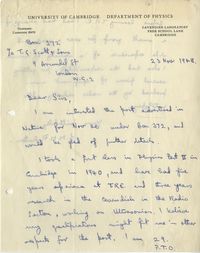 UNIVERSITY OF CAMBRIDGE DEPARTMENT OF PHYSICS
TELEPHONE
CAMBRIDGE
CAVENDISH LABORATORY
FREE SCHOOL LANE
CAMBRIDGE
Box 372
To T.G. Scott & Sons
9 Arundel St
London
W.C.2
23 Nov 1948.
Dear Sirs,
I am interested in the post advertised in
Nature for Nov 20 under Box 372, and
would be glad of further details.
I took a first class in Physics Part II in
Cambridge in 1940, and have had five
years experience at T.R.E. and three years
research in the Cavendish in the Radio
Section, working on Ultrasonics. I believe
my qualifications might fit me in other
respects for the post, I am 29.
P.T.O.